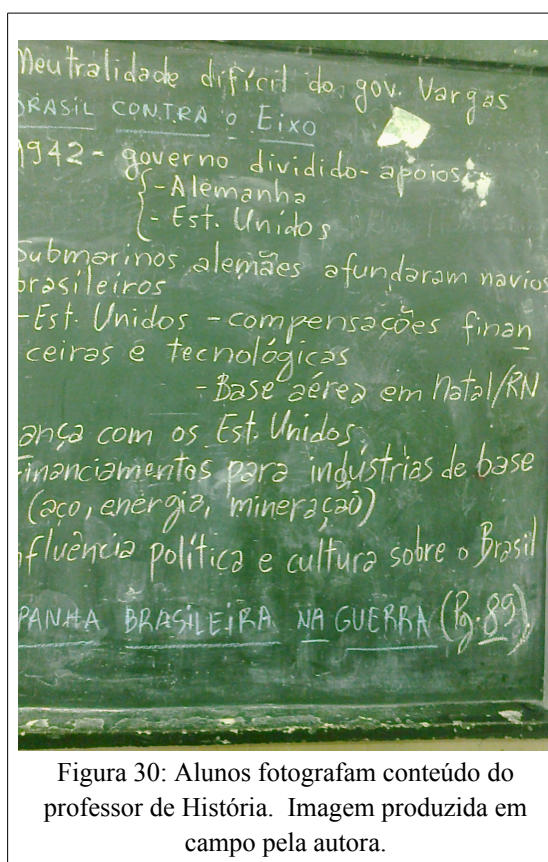 Neutralidade difícil do gov. Vargas
BRASIL CONTRA O EIXO
1942 - governo dividido - apoios
- Alemanha
- Est. Unidos
Submarinos alemães afundaram navios
brasileiros
- Est. Unidos - compensações finan
ceiras e tecnológicas
- Base aérea em Natal/RN
ança com os Est. Unidos
Financiamentos para indústrias de base
(aço, energia, mineração)
nfluência política e cultura sobre o Brasil
PANHA BRASILEIRA NA GUERRA (Pg. 89)
Figura 30: Alunos fotografam conteúdo do
professor de História. Imagem produzida em
campo pela autora.